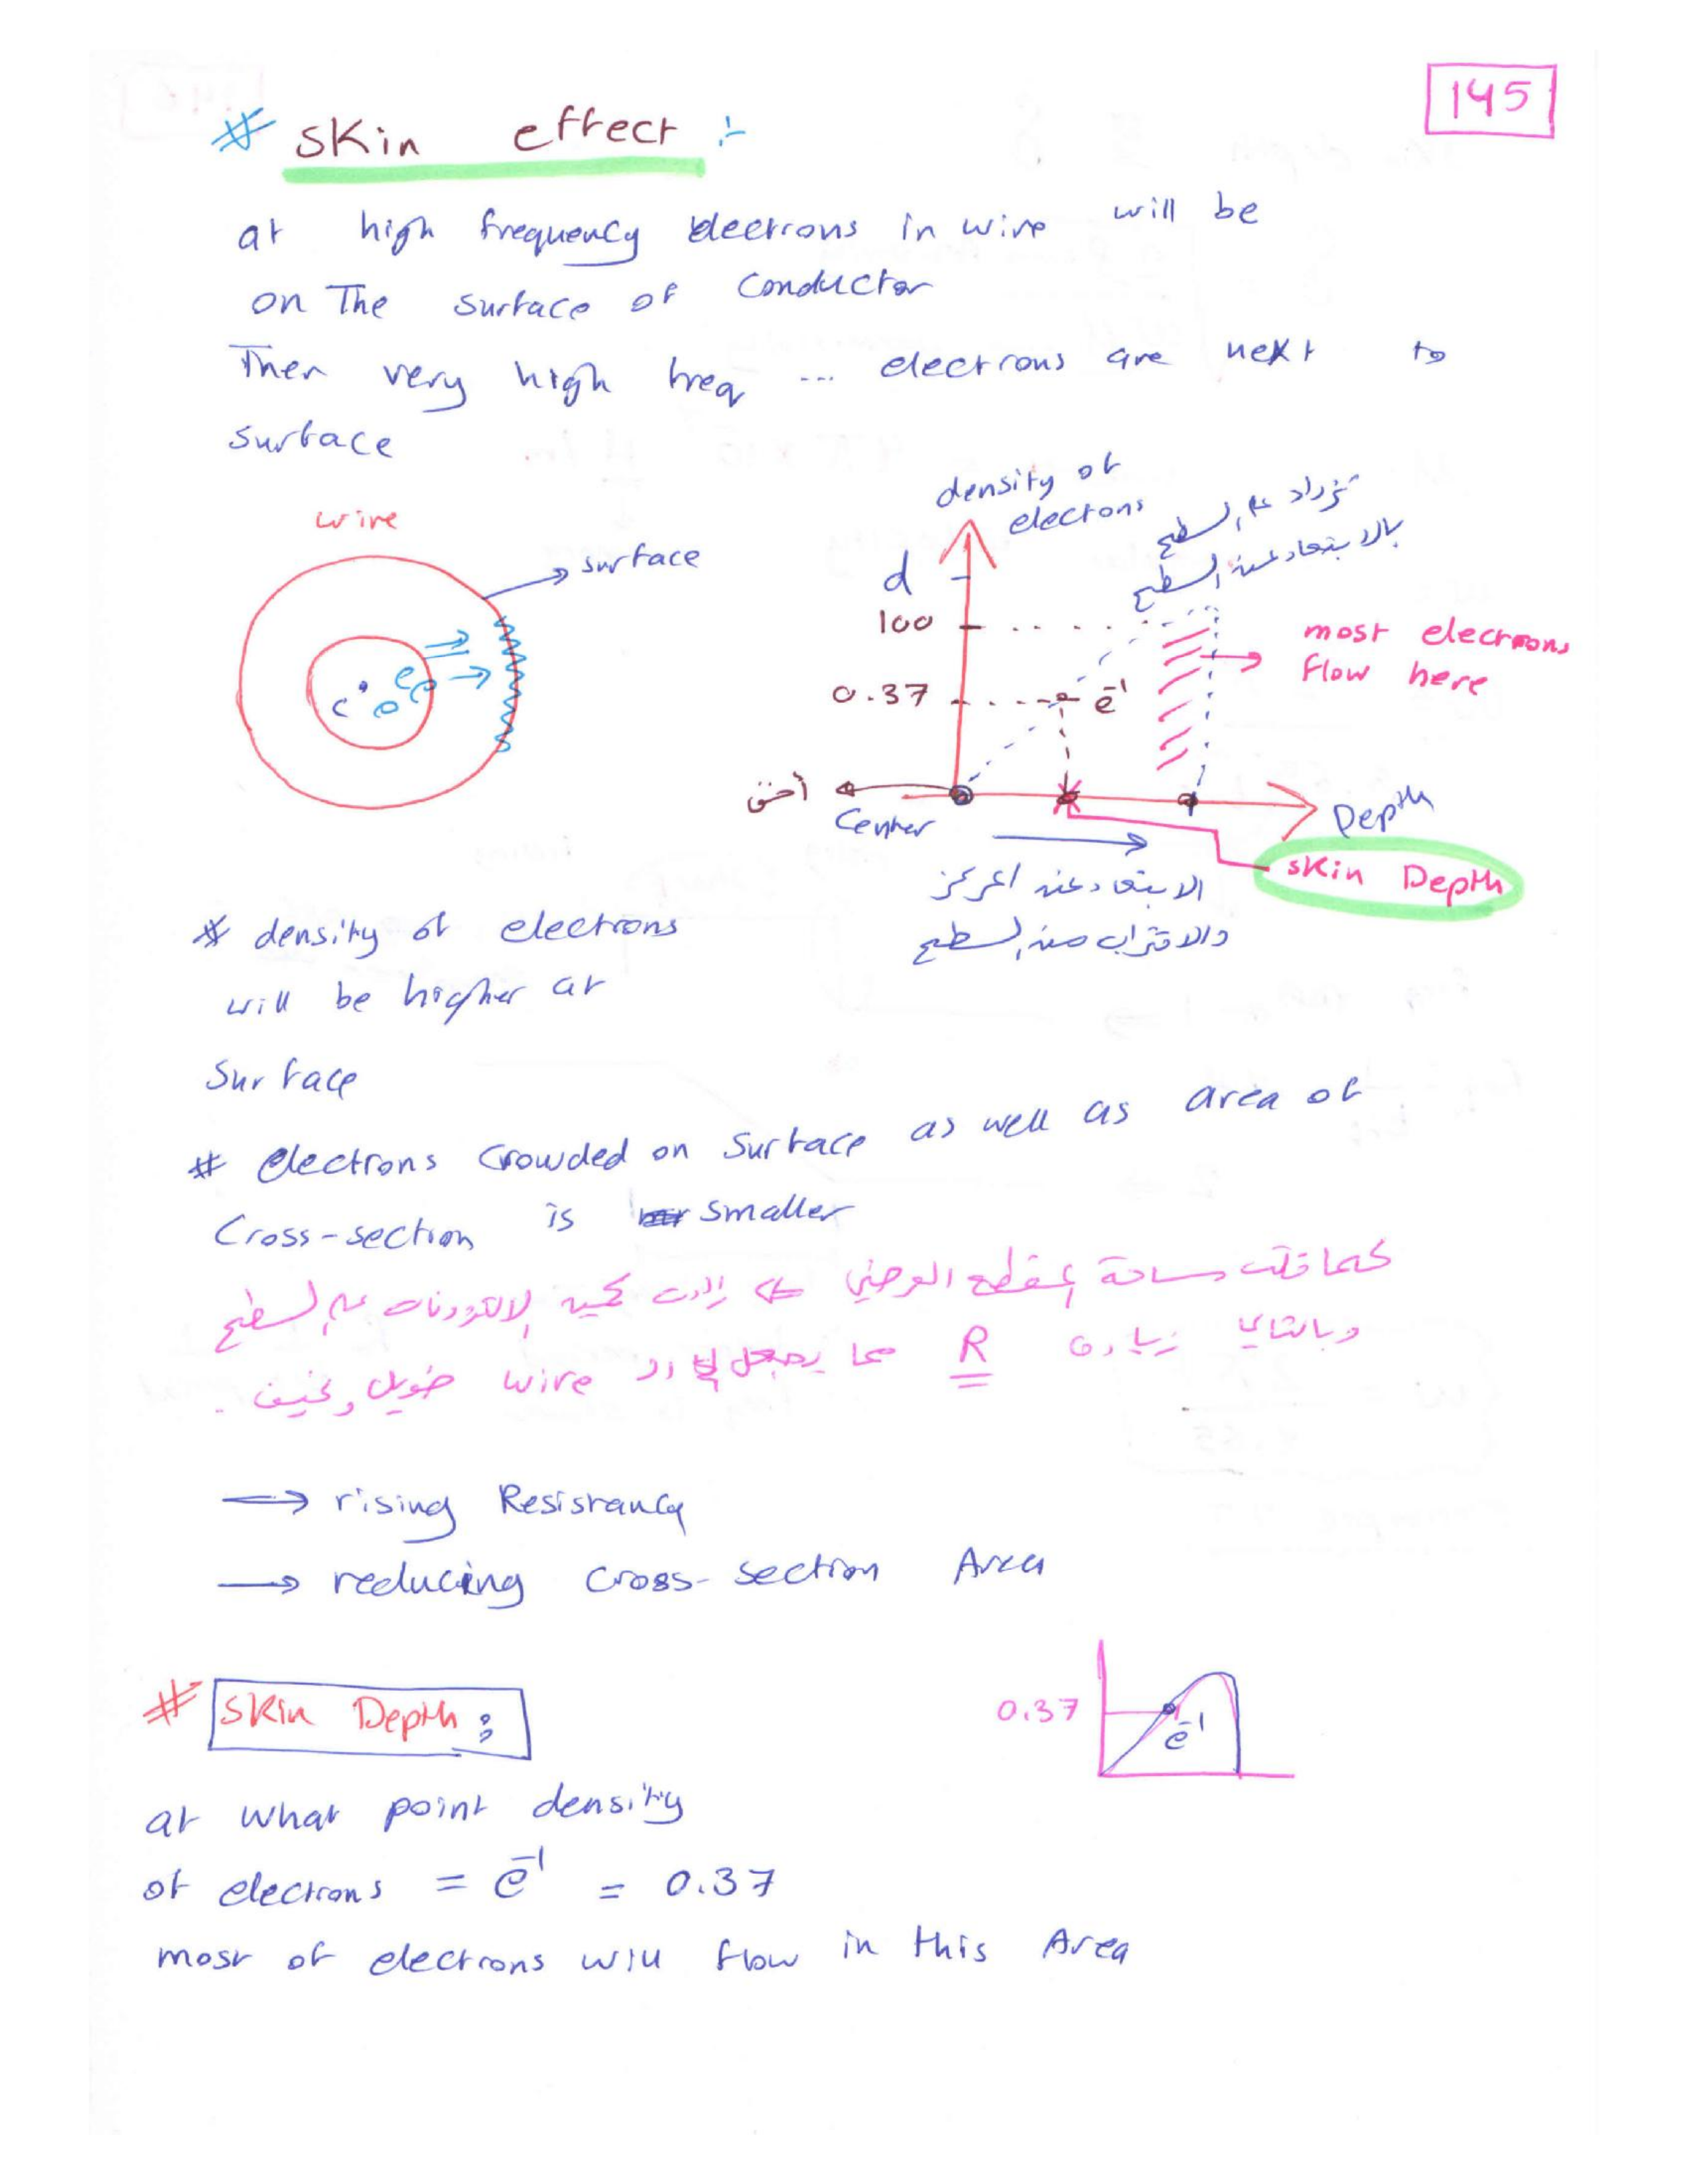 145
# skin effect :-
at high frequency electrons in wire will be
on The surface of Conductor
Then very high freq ... electrons are next to
surface
wire
surface
c
density of
electons
تزداد على السطح
بالابتعاد عن السطح
d
100
0.37
e⁻¹
most electrons
flow here
Center
Depth
skin Depth
الابتعاد عن المركز
والاقتراب من السطح
# density of electrons
will be higher at
Surface
# electrons Crowded on Surface as well as area of
Cross-section is smaller
كما قلت مساحة المقطع العرضي ⇐ زادت كمية الالكترونات على السطح
وبالتالي زيادة R مما يجعل الـ wire طويل ونحيف .
→ rising Resistancy
→ reducing Cross-section Area
# Skin Depth :
0.37
e⁻¹
at what point density
of electrons = e⁻¹ = 0.37
most of electrons will flow in this Area